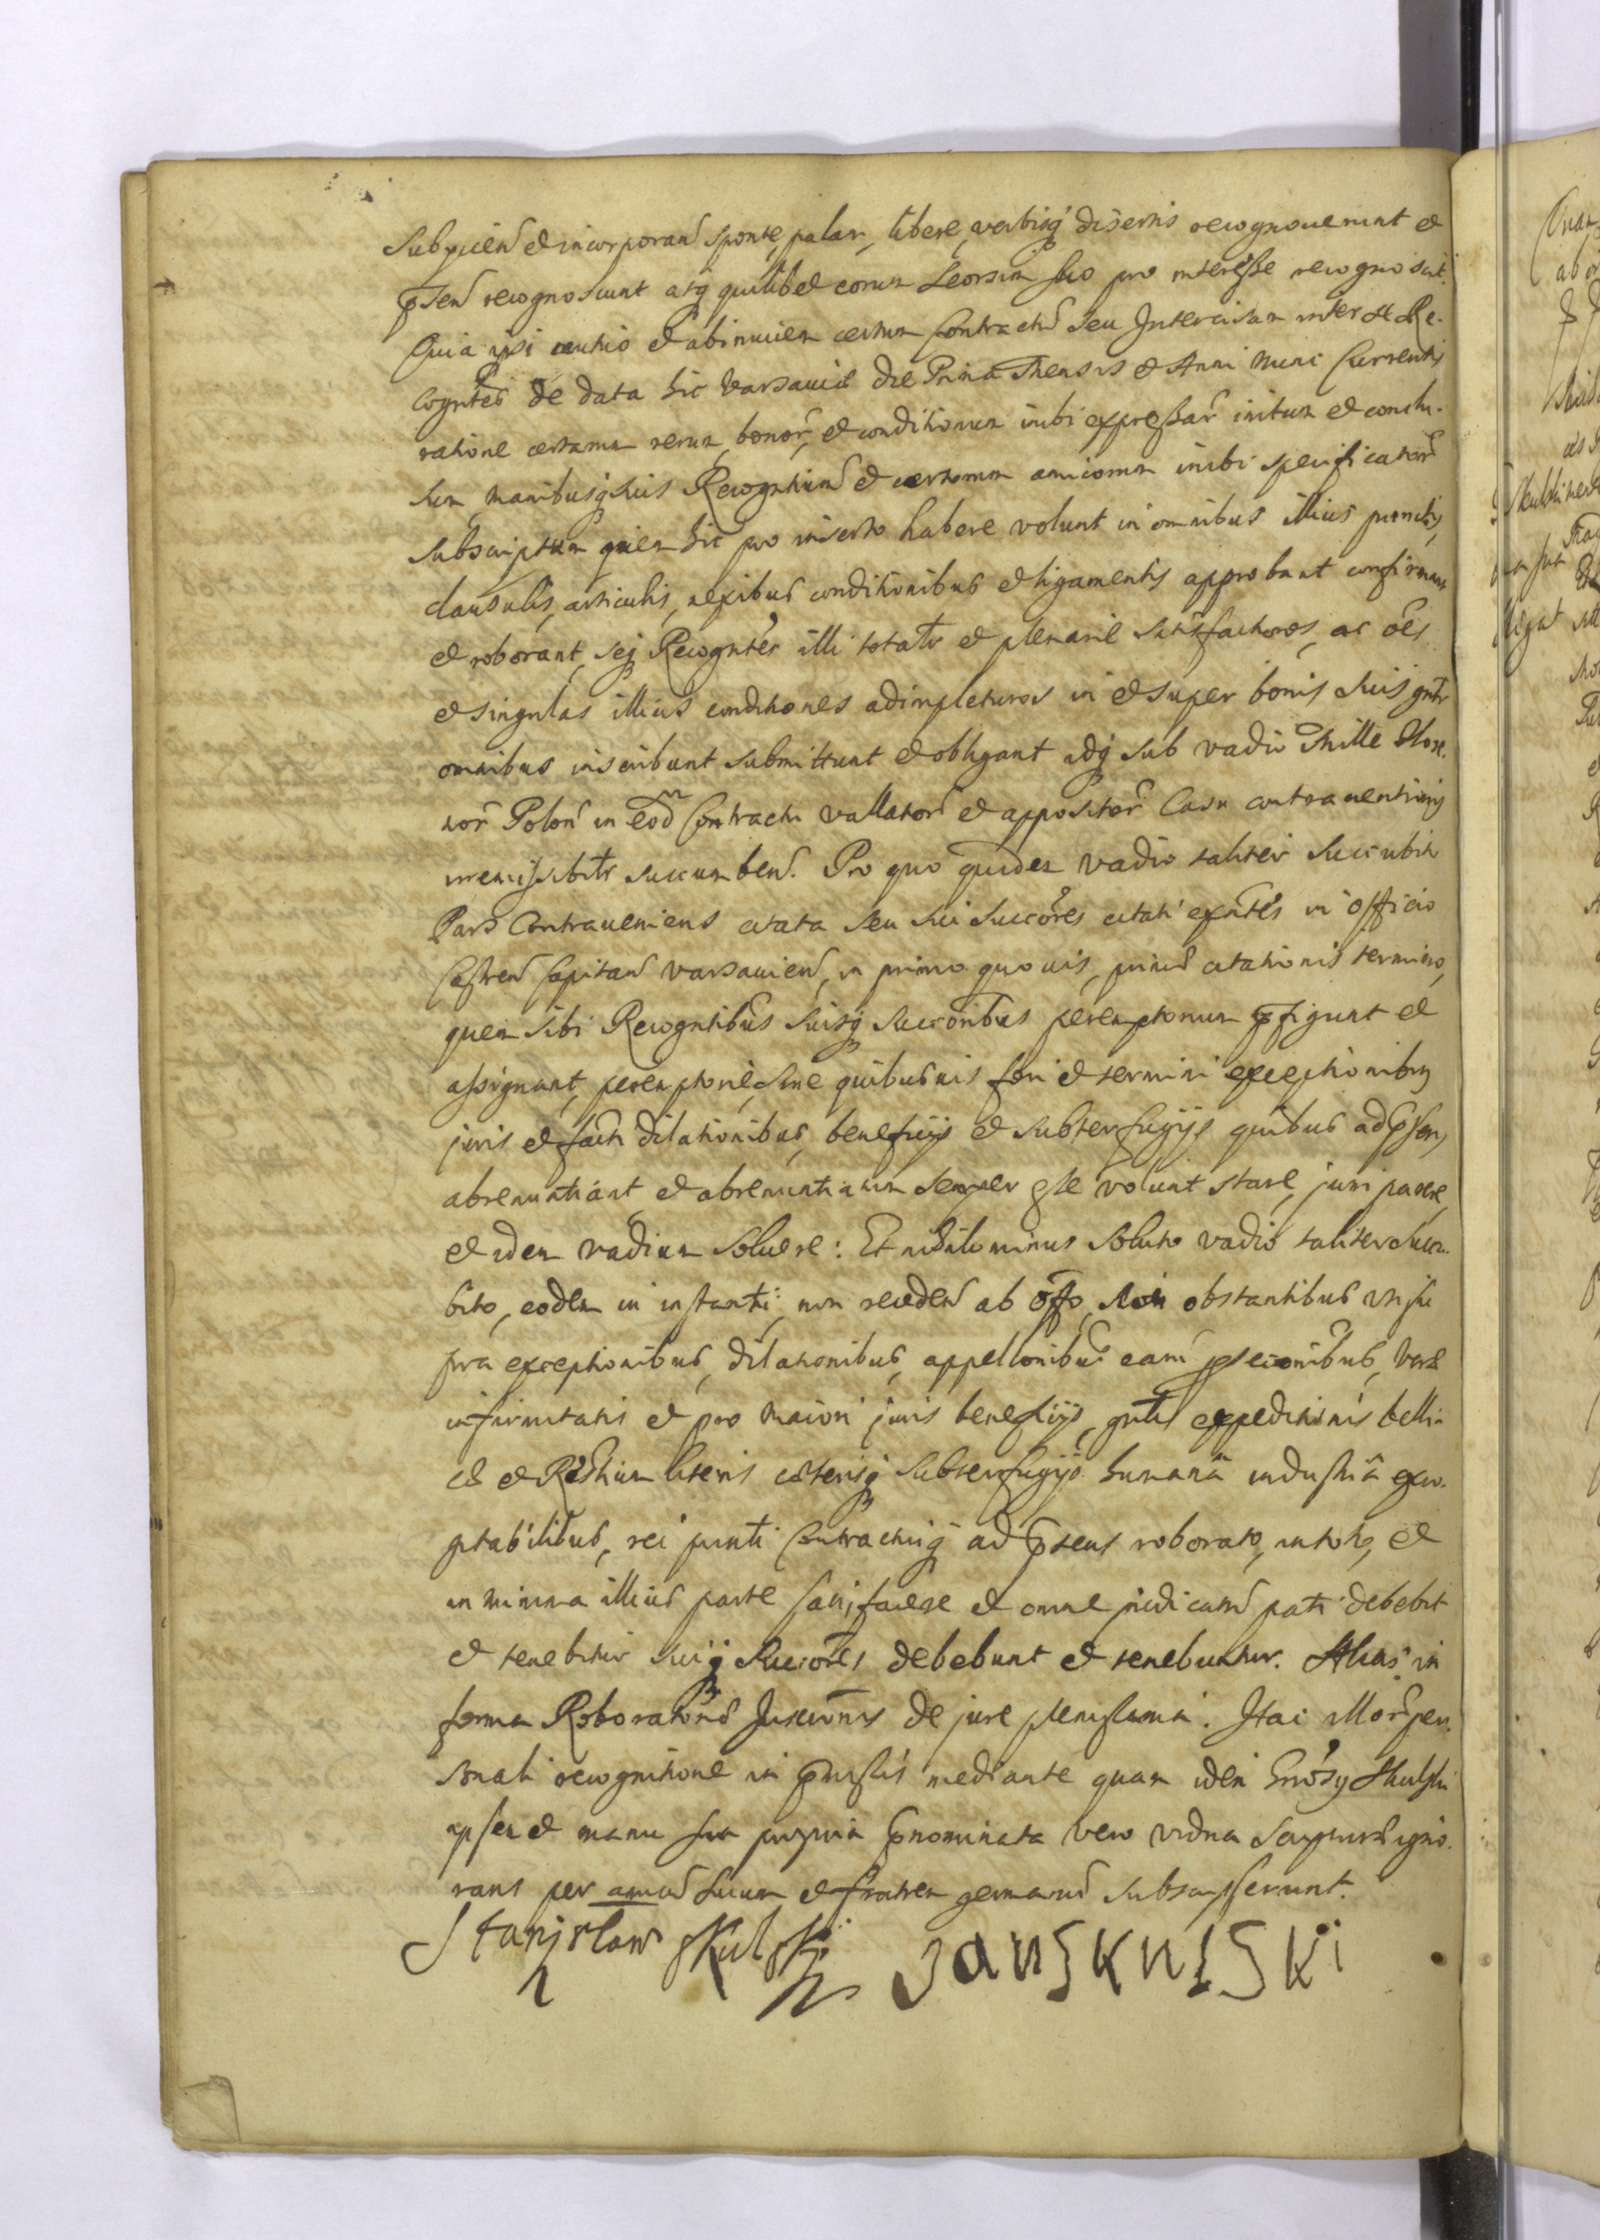 Subijciend et incorporand sponte, palam, libere, verbisq disertis recognoverunt et
pnsen recognoscunt atq quilibet eorum Seorsim suo pro interesse recognoscit.
Quia ipsi mutuo et abinuicem certum Contractu seu Intercisam inter se Re-
cogntes de data hic Varsauiæ die Prima Mensis et Anni Nunc Currentis
ratione certarum rerum, bonor, et conditionum inibi expressar initum et conclu-
sum manibusq suis Recogntium et certorum amicorum inibi specificator
subscriptum quem hic pro inserto habere volunt in omnibus illius punctis,
clausulis, articulis, nexibus conditionibus et ligamentis approbant confirmant
et roborant, seq Recogntes illi totalr et plenarie satisfacturos, ac oes
et singulas illius conditiones adimpleturos in et super bonis suis gnlr
omnibus inscribunt submittunt et obligant idq sub vadio Mille Flore-
nor Polon in eod Contractu vallator et appositor Casu contrauentionis
irremissibilr succumben. Pro quo quidem vadio taliter succubito
Pars Contraueniens citata seu sui succores citati exntes in officio
Castren Capitan Varsauien, in primo quouis, primæ citationis termino,
quem sibi Recogntibus suisq succoribus peremptorium pfigunt et
assignant, peremptorie, sine quibusuis fori et termini exceptionibus
juris et facti dilationibus, beneficijs et subterfugijs quibus ad psens
abrenuntiant et abrenuntiatum semper esse volunt stare, juri parere,
et idem vadium soluere: Et nihilominus soluto vadio taliter succu-
bito, eodem in instanti, non receden ab offo, Non obstantibus vnsis
fra exceptionibus, dilationibus, appellonibus earu psecuonibus, veræ
infirmitatis et pro maiori juris beneficijs, gnlis expeditionis belli-
cæ et Rgalium literis cæterisq subterfugijs humana industria exco-
gitabilibus, rei puncti Contractusq ad psens roborato, in toto, et
in minima illius parte satisfacere et omne judicatu pati debebit
et tenebitur suiq succores debebunt et tenebuntur. Alias in
forma Roboratonis Inscrionis de jure plenissima. Itaq illor per-
sonali recognitione in pmissis mediante quam idem Grosi Skulski
ipsemet manu sua propria pnominata vero vidua scripturæ igno-
rans per amicu suum et fratrem germanu subscripserunt.
Stanisław Skulski Jan Skulski